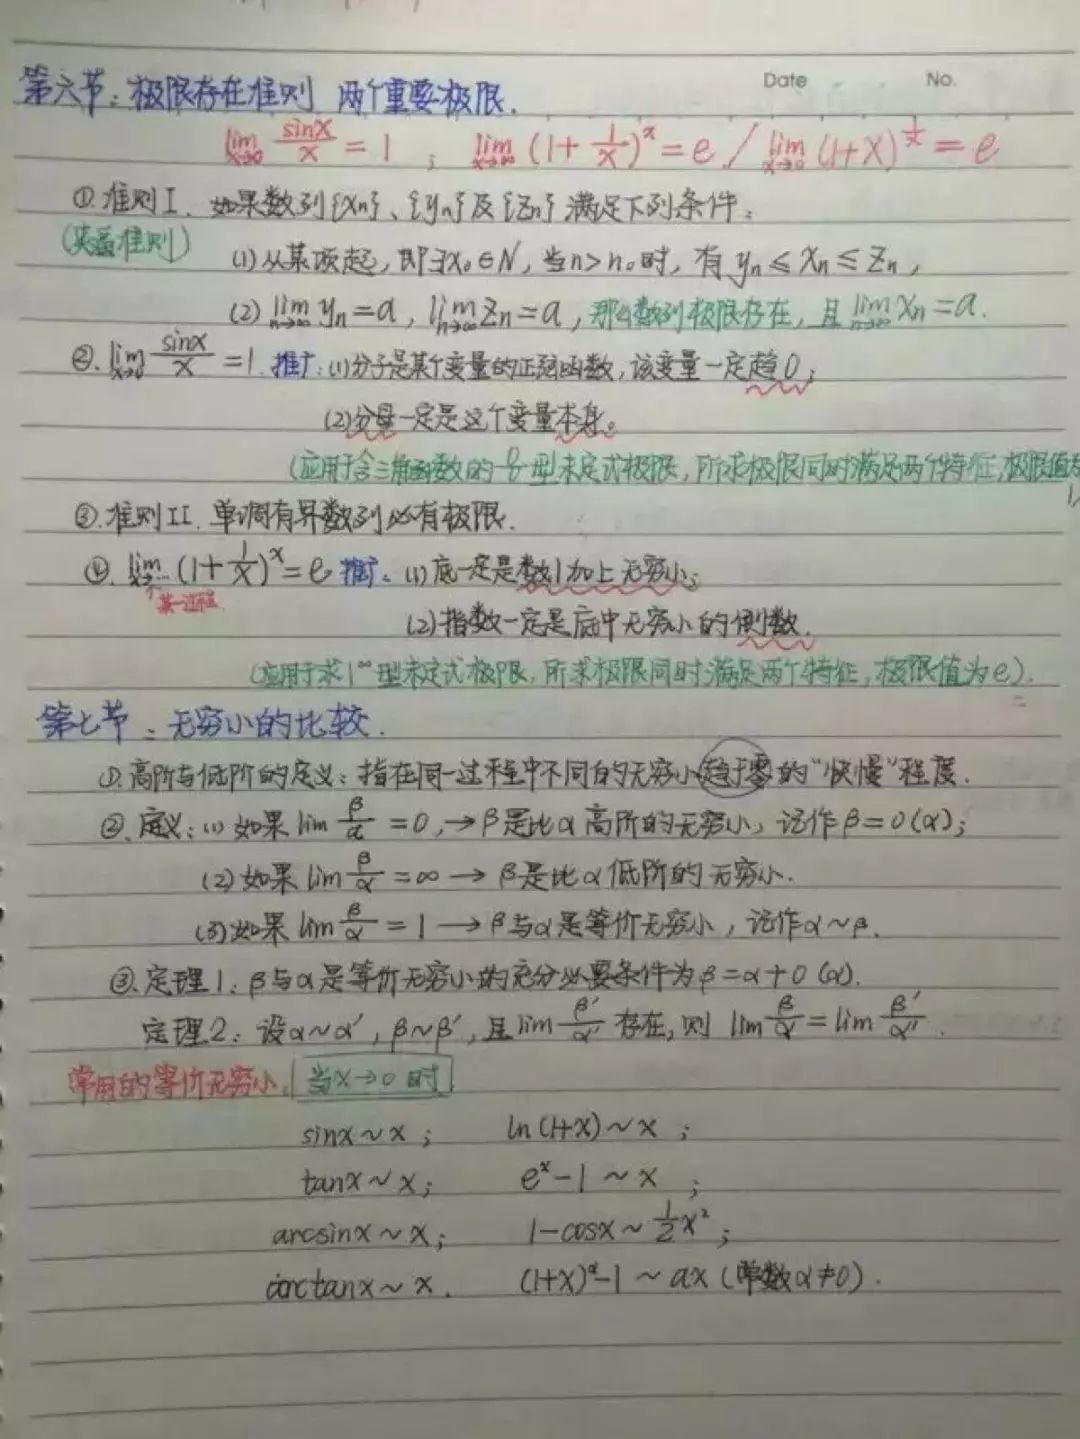 Date No.
第六节:极限存在准则 两个重要极限.
lim x→0 sinx/x = 1 ; lim x→∞ (1+1/x)^x = e / lim x→0 (1+x)^(1/x) = e
①.准则I.如果数列{xn}、{yn}及{zn}满足下列条件:
(夹逼准则)
(1)从某项起,即∃x₀∈N,当n>n₀时,有 yn≤xn≤zn,
(2) lim n→∞ yn=a, lim n→∞ zn=a,那么数列极限存在,且 lim n→∞ xn=a.
②. lim x→0 sinx/x =1. 推广:(1)分子是某个变量的正弦函数,该变量一定趋0;
(2)分母一定是这个变量本身。
(应用于含三角函数的 0/0 型未定式极限,所求极限同时满足两个特征,极限值为
1)
③.准则II.单调有界数列必有极限.
④. lim (1+1/x)^x=e 推广:(1)底一定是数1加上无穷小;
某一过程
(2)指数一定是底中无穷小的倒数.
(应用于求1^∞型未定式极限,所求极限同时满足两个特征,极限值为e).
第七节:无穷小的比较.
①.高阶与低阶的定义:指在同一过程中不同的无穷小趋于零的"快慢"程度.
②.定义:(1)如果lim β/α =0,→β是比α高阶的无穷小,记作β=0(α);
(2)如果lim β/α =∞→β是比α低阶的无穷小.
(3)如果lim β/α = 1→β与α是等价无穷小,记作α~β.
③.定理1:β与α是等价无穷小的充分必要条件为β=α+0(α).
定理2:设α~α′,β~β′,且lim β′/α′ 存在,则 lim β/α = lim β′/α′.
常用的等价无穷小.当x→0时
sinx~x; ln(1+x)~x;
tanx~x; e^x-1~x;
arcsinx~x; 1-cosx~1/2x²;
arctanx~x. (1+x)^α-1~αx(常数α≠0).